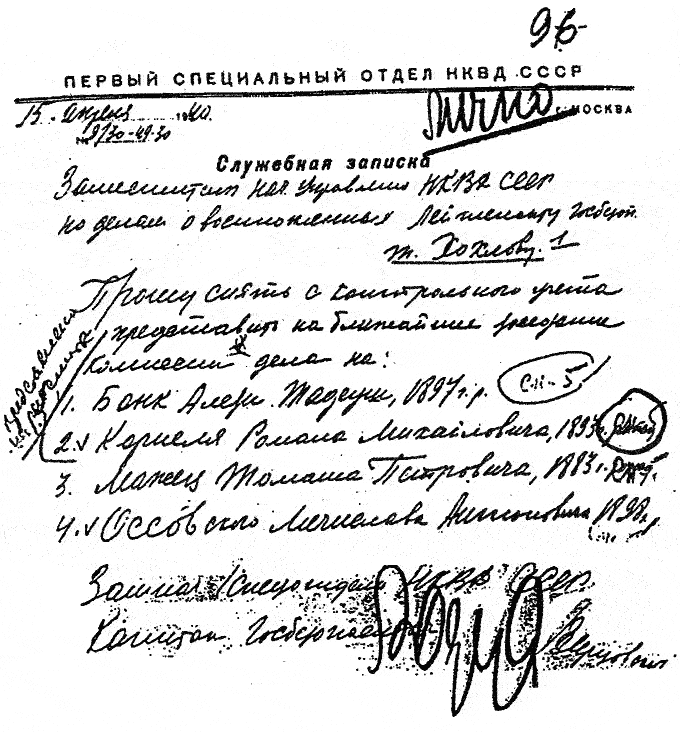 96
ПЕРВЫЙ СПЕЦИАЛЬНЫЙ ОТДЕЛ НКВД СССР
15 апреля 1940.
Г. МОСКВА
№ 9/30-4930
Служебная записка
Заместителю нач. Управления НКВД СССР
по делам о военнопленных Лейтенанту Госбезоп.
т. Хохлову. 1
Прошу снять с контрольного учета
и представить на ближайшие заседание
комиссии дела на:
1. Банк Алекр. Тадеуш, 1897 г.р.
2. v Корнеля Романа Михайловича, 1893 г.
3. Мажец Томаша Петровича, 1883 г.
4. v Оссовского Мечислава Антоновича 189
Зам нач 1 Спецотдела НКВД СССР
Капитан Госбезопасности